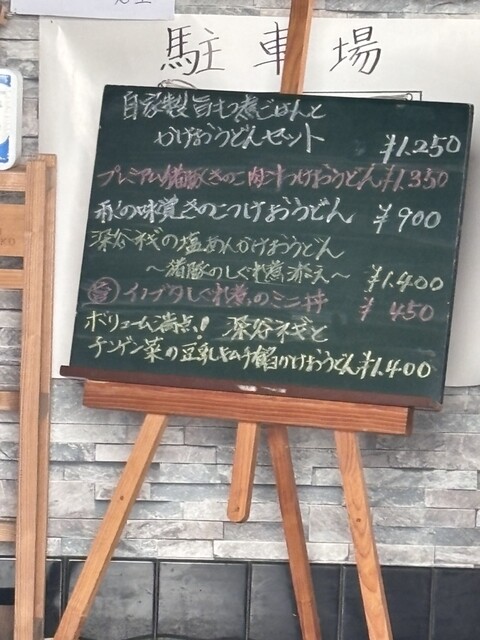 駐車場
自家製旨もつ煮ごはんと
かけおうどんセット ¥1.250
プレミアム猪豚きのこ肉汁つけおうどん¥1.350
秋の味覚きのこつけおうどん ¥900
深谷ネギの塩あんかけおうどん
～猪豚のしぐれ煮添え～ ¥1.400
旨 イノブタしぐれ煮のミニ丼 ¥450
ボリューム満点! 深谷ネギと
チンゲン菜の豆乳キムチ餡かけおうどん¥1.400